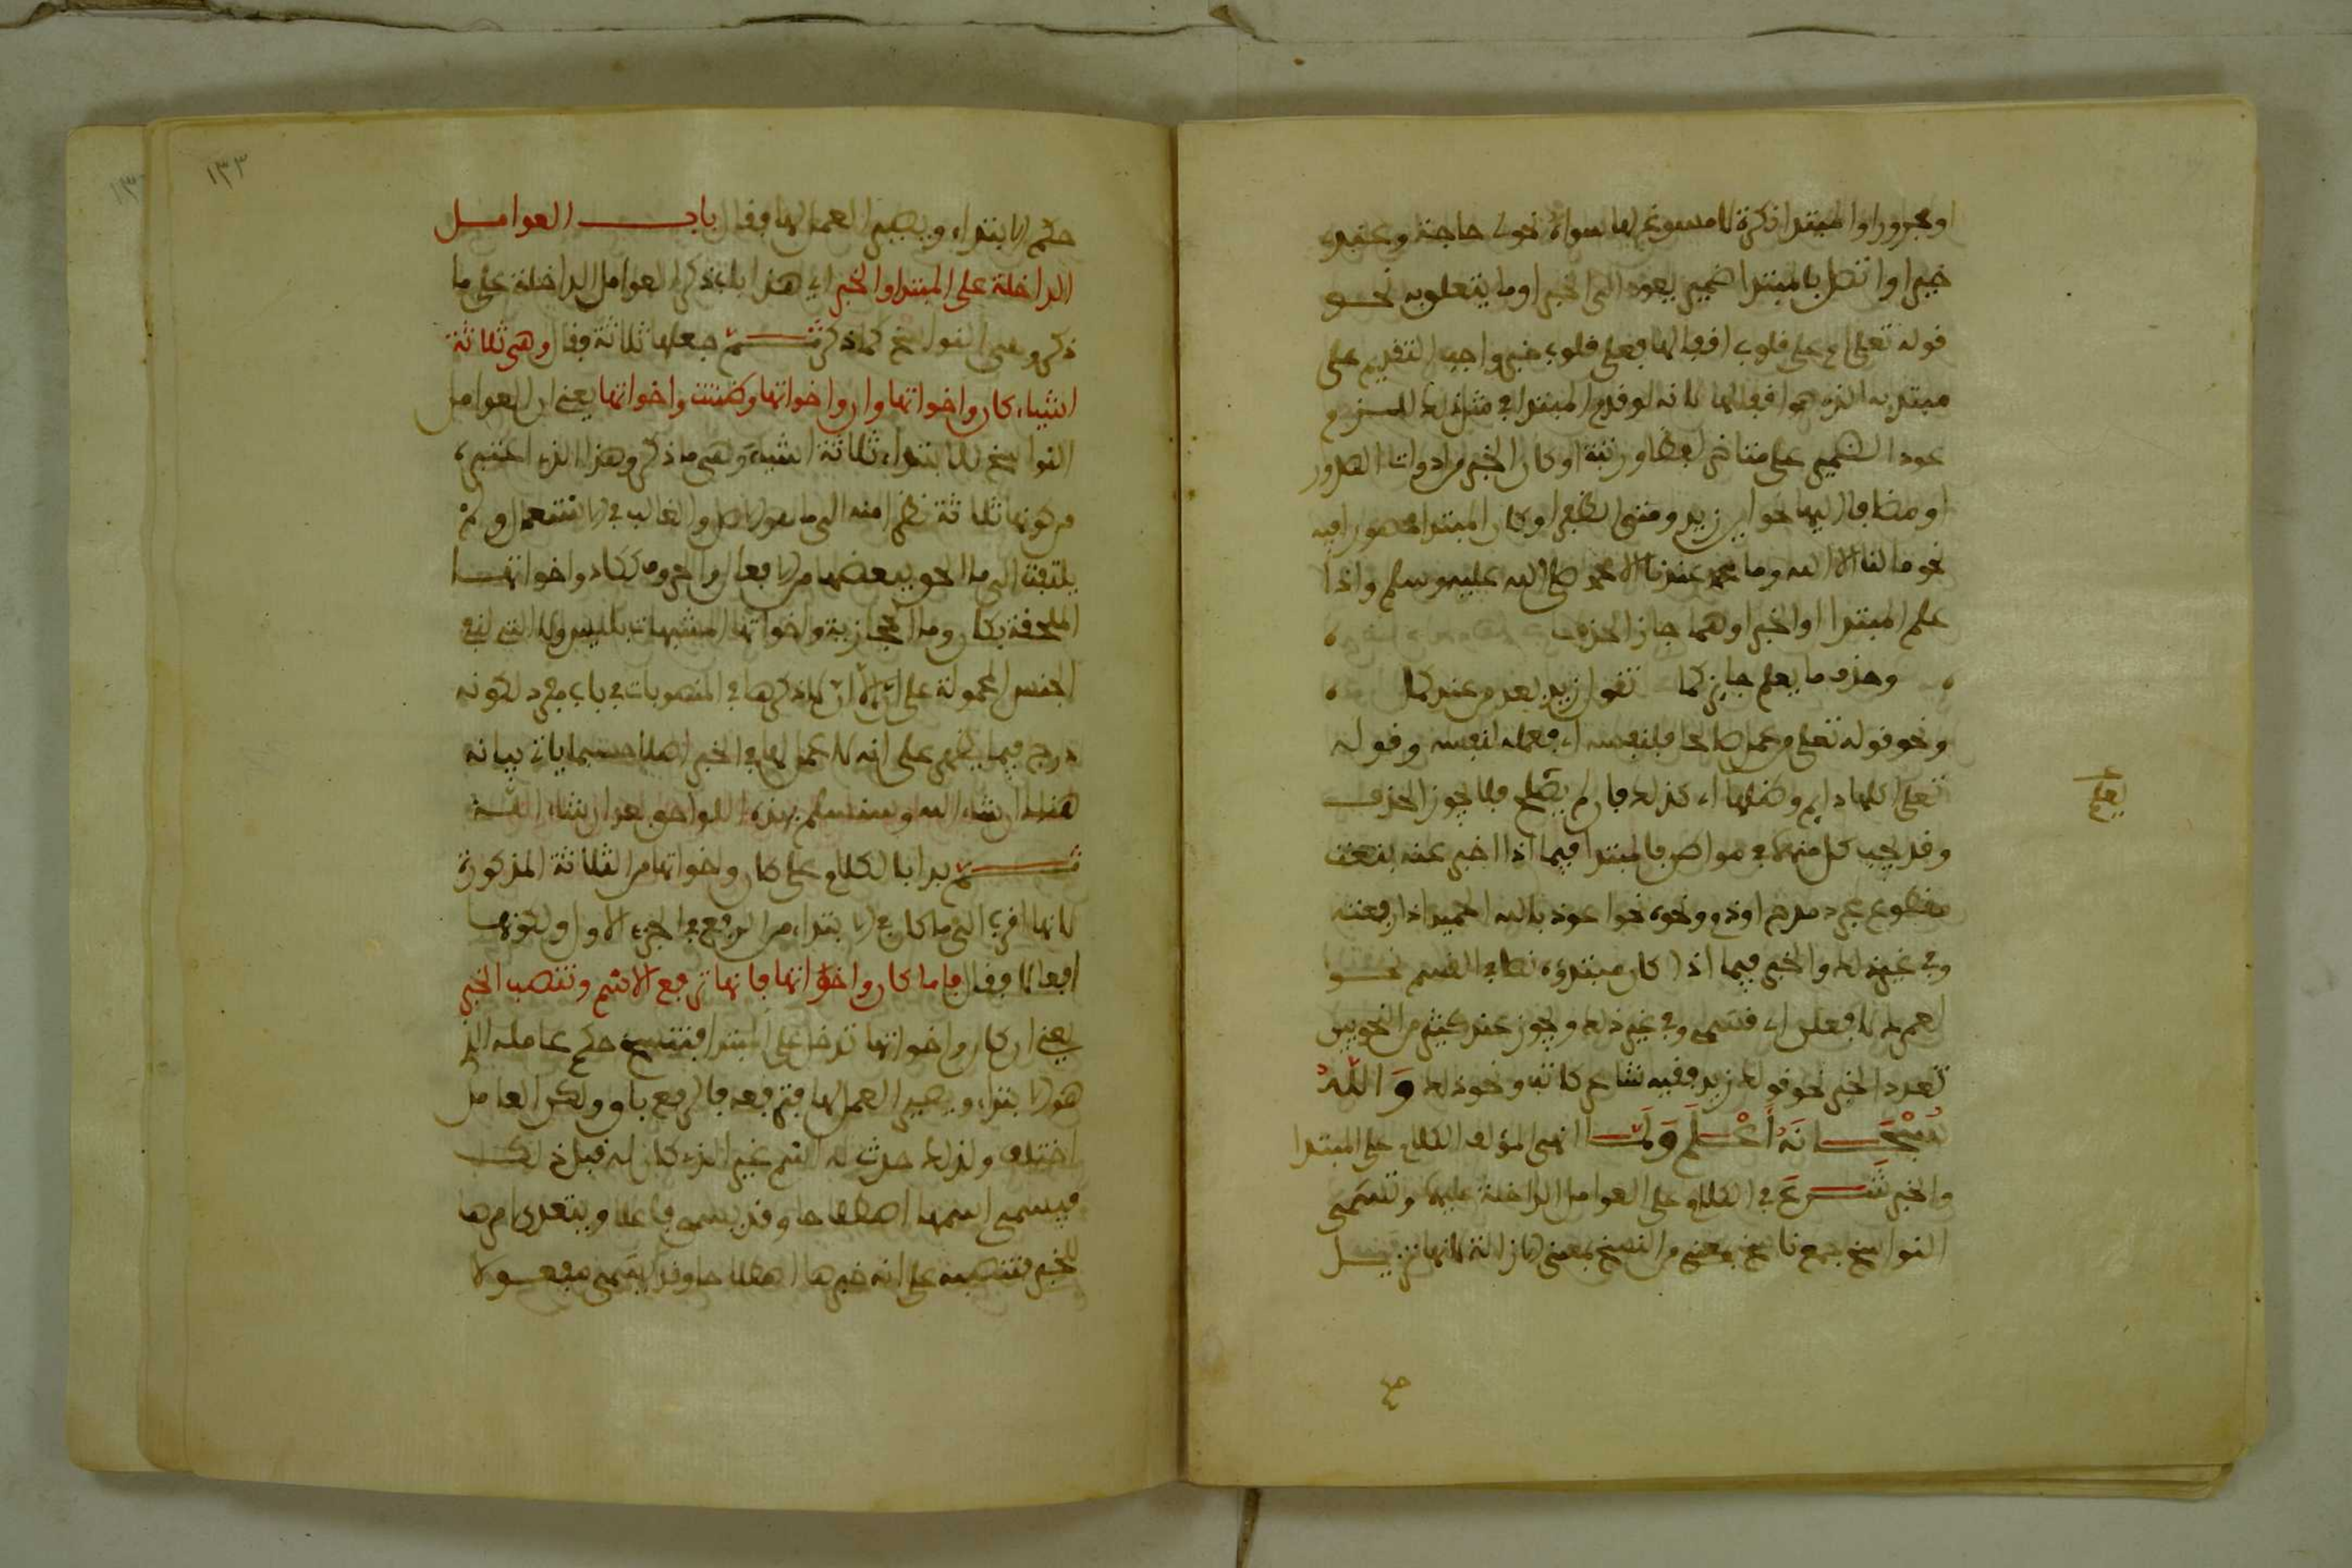 او مجرورا والمبتدا نكرة لا مسوغ لها سواه نحو لي حاجة وعندي
خبر او اتصل بالمبتدا ضمير يعود الى الخبر او ما يتعلق به نحو
قوله تعلى ام على قلوب اقفالها فعلى قلوب خبر واجب التقديم على
مبتدئه الذي هو اقفالها لانه لو قدم المبتدا في مثل ذلك للزم
عود الضمير على متاخر لفظا ورتبة او كان الخبر من ادوات الصدور
او مضافا اليها نحو اين زيد ومتى نظفر او كان المبتدا محصورا فيه
نحو ما لنا الا الله وما محمد عندنا الا محمد صلى الله عليه وسلم واذا
علم المبتدا او الخبر او هما جاز الحذف
وحذف ما يعلم جايز كما تقول زيد بعد من عندكما
ونحو قوله تعلى من عمل صالحا فلنفسه اي فعمله لنفسه وقوله
تعلى اكلها دايم وظلها اي كذلك فان لم يصلح فلا يجوز الحذف
يعلم
وقد يجب كل منهما في مواضع فالمبتدا فيما اذا اخبر عنه بنعت
مقطوع لمجرد مدح او ذم ونحوه نحو اعوذ بالله الحميد اذا رفعته
وفي غير ذلك والخبر فيما اذا كان مبتدؤه نصا في القسم نحو
لعمرك لافعلن اي قسمي وفي غير ذلك ويجوز عند كثير من النحويين
تعدد الخبر نحو قولك زيد فقيه شاعر كاتب ونحو ذلك وَاللهُ
سُبْحَانَهُ أَعْلَمُ وَلَمَّا انهى المؤلف الكلام على المبتدا
والخبر شَرَعَ في الكلام على العوامل الداخلة عليهما وتسمى
النواسخ جمع ناسخ بمعنى من النسخ بمعنى الازالة لانها تزيل
حكم الابتداء ويصير العمل لها فقال باب العوامل
الداخلة على المبتدا والخبر اي هذا باب ذكر العوامل الداخلة على ما
ذكر وهي النواسخ كما ذكر ثم جعلها ثلاثة فقال وهي ثلاثة
اشياء كان واخواتها وان واخواتها وظننت واخواتها يعني ان العوامل
النواسخ للابتداء ثلاثة اشياء وهي ما ذكر وهذا الذي اعتبره
من كونها ثلاثة نظرا منه الى ما هو الاصل والغالب في الاستعمال ولم
يلتفت الى ما الحق ببعضها من الافعال والحروف ككاد واخواتها
الملحقة بكان وما الحجازية واخواتها المشبهات بليس ولا التي لنفي
الجنس المحمولة على ان الا ان لا ذكرها في المنصوبات في باب مفرد لكونه
درج فيما يظهر على انه لا عمل لها في الخبر اصلا حسبما ياتي بيانه
هنالك ان شاء الله وسنسلم بهذه اللواحق بعد ان شاء الله
ثم بدا بالكلام على كان واخواتها من الثلاثة المذكورة
لانها اقرب الى ما كان في الابتداء من الرفع في الجزء الاول ولكونها
افعالا فقال فاما كان واخواتها فانها ترفع الاسم وتنصب الخبر
يعني ان كان واخواتها تدخل على المبتدا فتنسخ حكم عامله الذي
هو الابتداء ويصير العمل لها فترفعه فالرفع باق ولكن العامل
اختلف ولذلك حدث له اسم غير الذي كان له قبل ذلك
فيسمى اسمها اصطلاحا وقد يسمى فاعلا ويتعدى امرها
للخبر فتنصبه على انه خبرها اصطلاحا وقد يسمى مفعولا
١٣٣